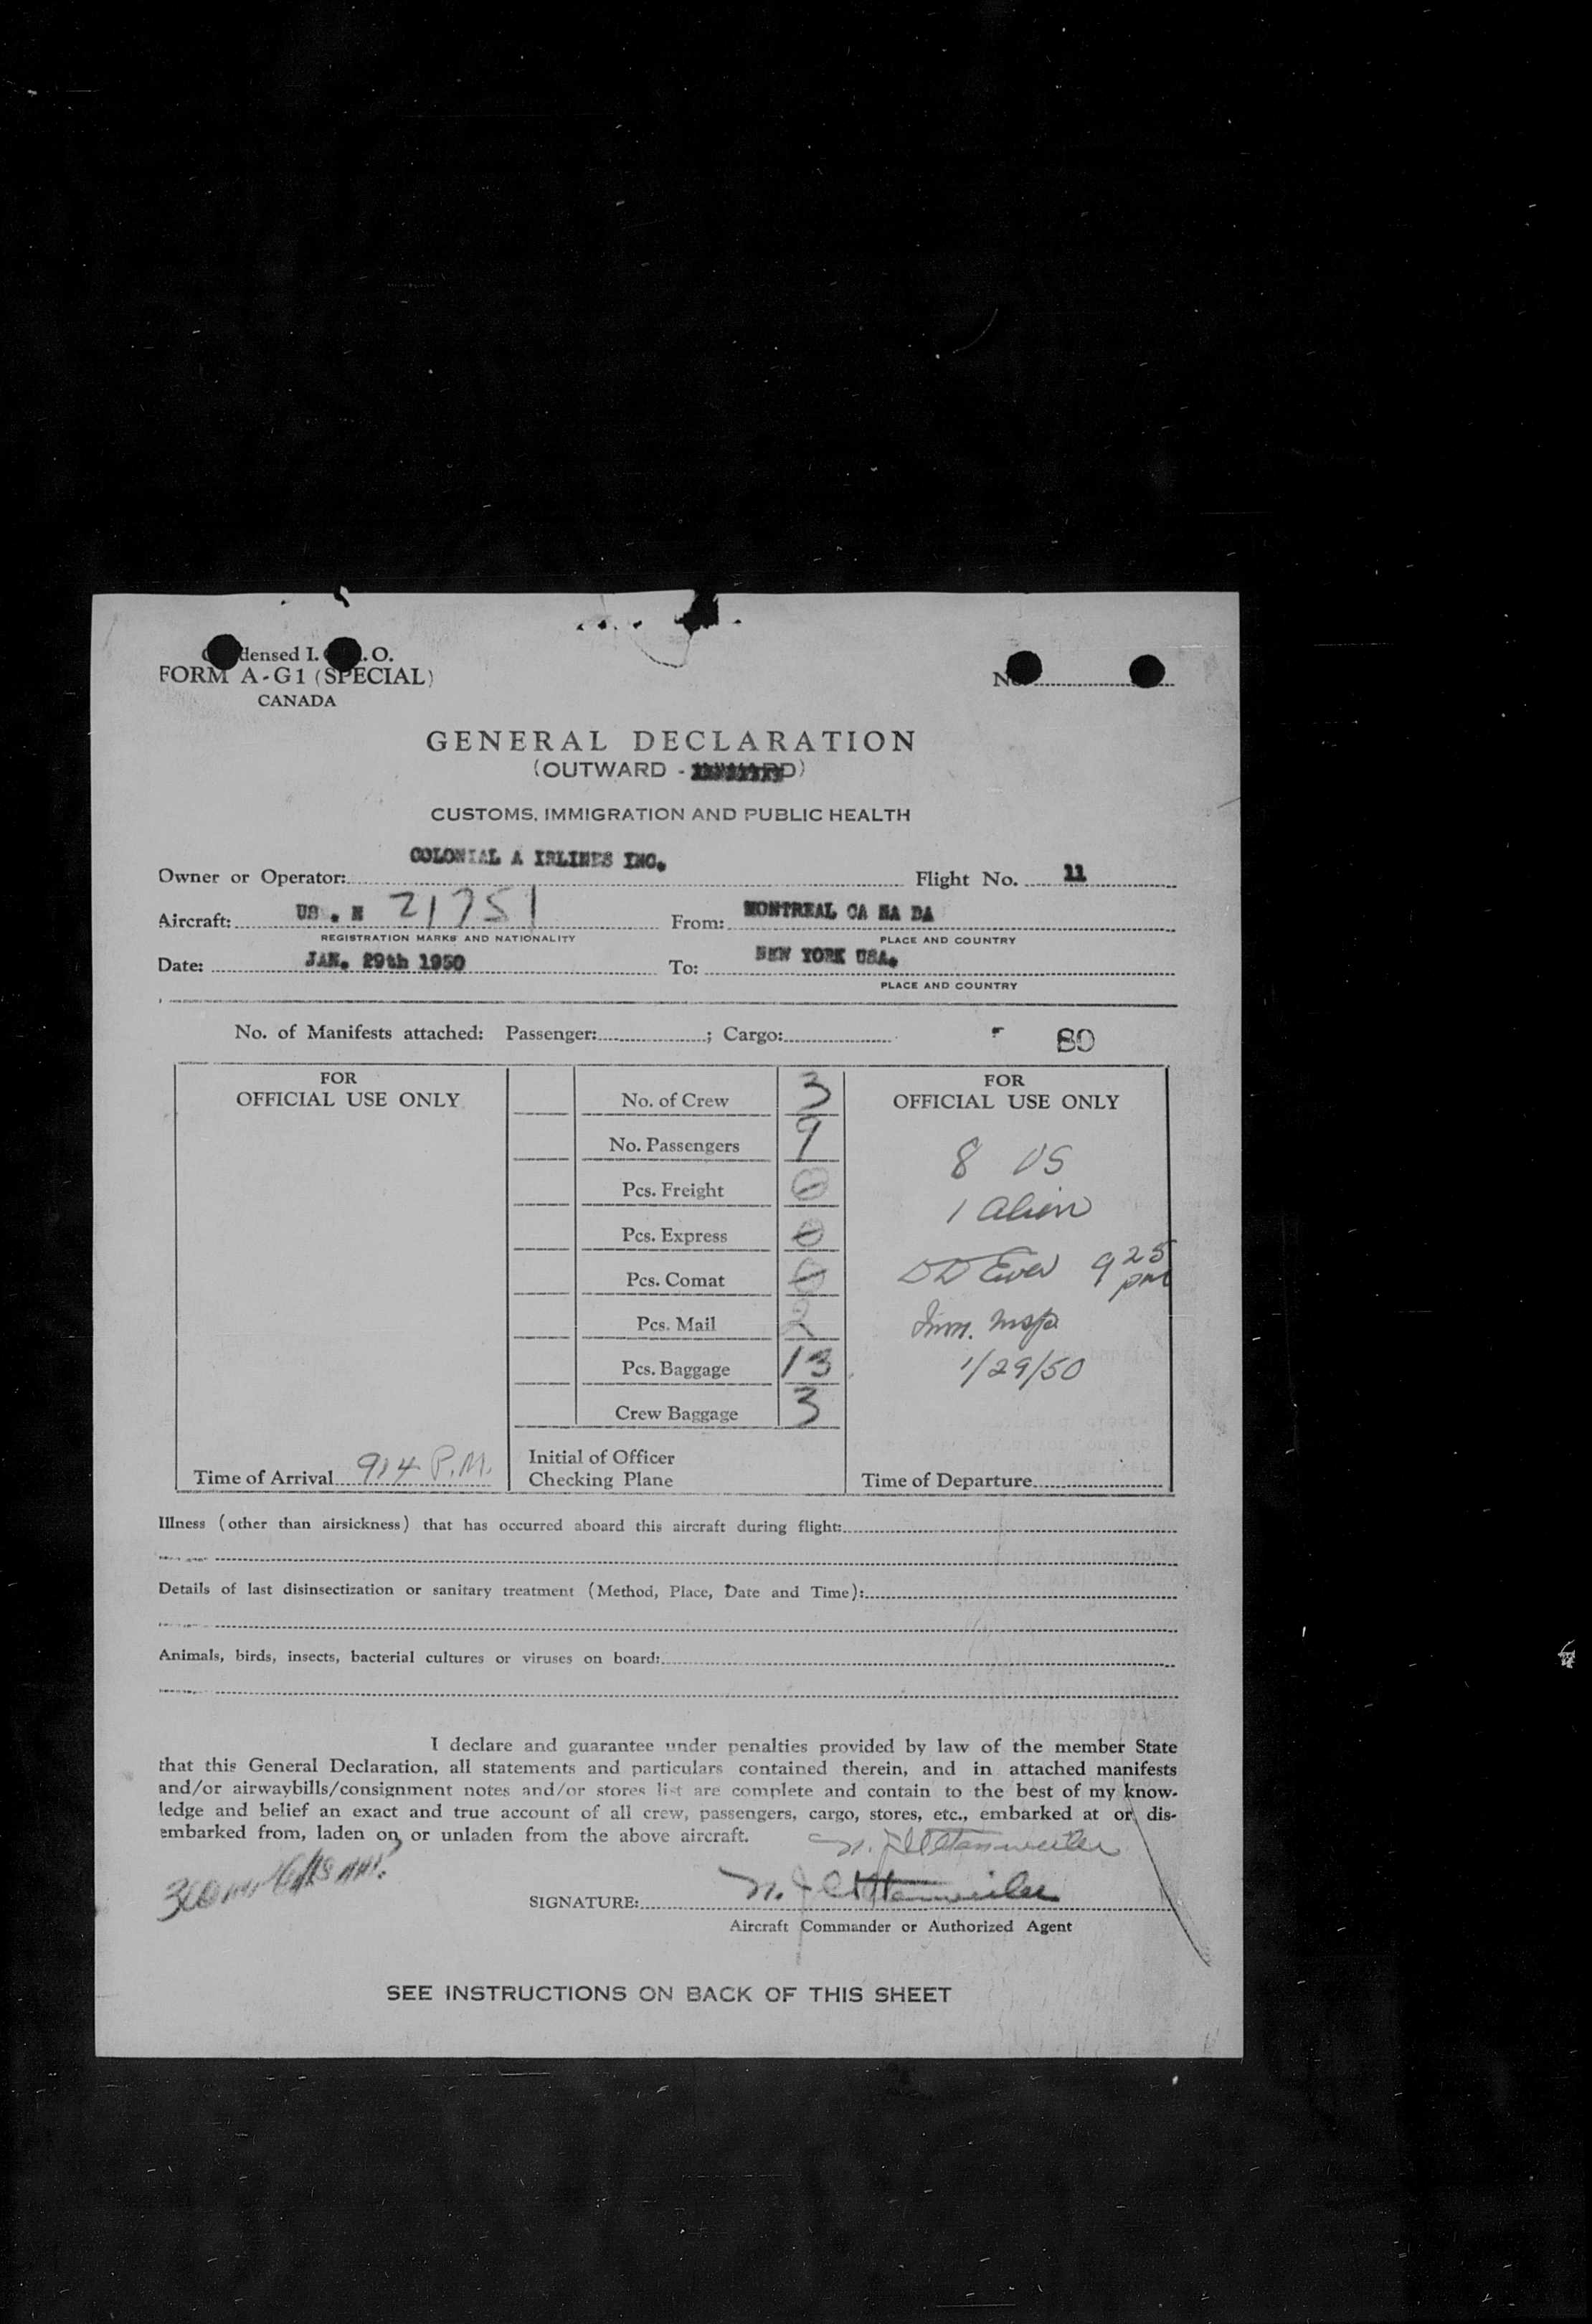 densed I. . O.
FORM A-G1 (SPECIAL)
CANADA
No.
GENERAL DECLARATION
(OUTWARD - D)
CUSTOMS, IMMIGRATION AND PUBLIC HEALTH
Owner or Operator: COLONIAL A IRLINES INC. Flight No. 11
Aircraft: US . N 21751 From: MONTREAL CA NA DA
REGISTRATION MARKS AND NATIONALITY PLACE AND COUNTRY
Date: JAN. 29th 1950 To: NEW YORK USA.
PLACE AND COUNTRY
No. of Manifests attached: Passenger: ; Cargo: 80
FOR
OFFICIAL USE ONLY
No. of Crew 3
No. Passengers 9
Pcs. Freight 0
Pcs. Express 0
Pcs. Comat 0
Pcs. Mail 2
Pcs. Baggage 13
Crew Baggage 3
FOR
OFFICIAL USE ONLY
8 US
1 Alien
9 25 pm
Imm. Insp.
1/29/50
Time of Arrival 914 P.M.
Initial of Officer
Checking Plane
Time of Departure
Illness (other than airsickness) that has occurred aboard this aircraft during flight:
Details of last disinsectization or sanitary treatment (Method, Place, Date and Time):
Animals, birds, insects, bacterial cultures or viruses on board:
I declare and guarantee under penalties provided by law of the member State
that this General Declaration, all statements and particulars contained therein, and in attached manifests
and/or airwaybills/consignment notes and/or stores list are complete and contain to the best of my know-
ledge and belief an exact and true account of all crew, passengers, cargo, stores, etc., embarked at or dis-
embarked from, laden on or unladen from the above aircraft.
SIGNATURE:
Aircraft Commander or Authorized Agent
SEE INSTRUCTIONS ON BACK OF THIS SHEET